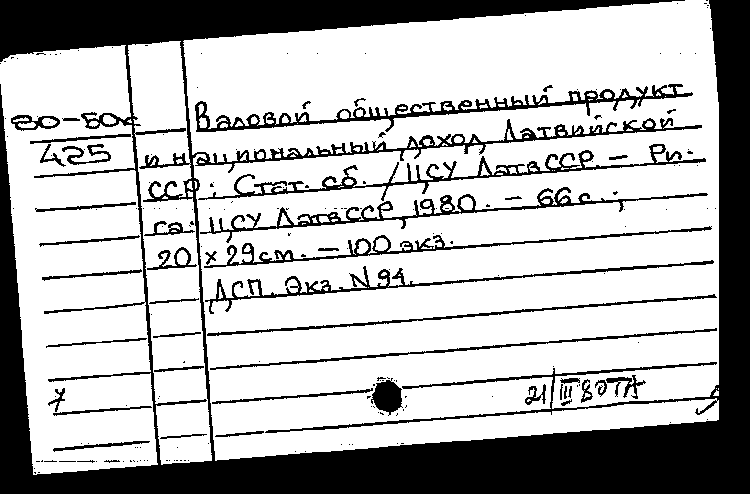 80-50к Валовой общественный продукт
425 и национальный доход Латвийской
ССР: Стат. сб. / ЦСУ ЛатвССР. – Ри-
га: ЦСУ ЛатвССР, 1980. – 66 с.;
20 × 29 см. – 100 экз.
ДСП. Экз. N 94.
7 21/III 80